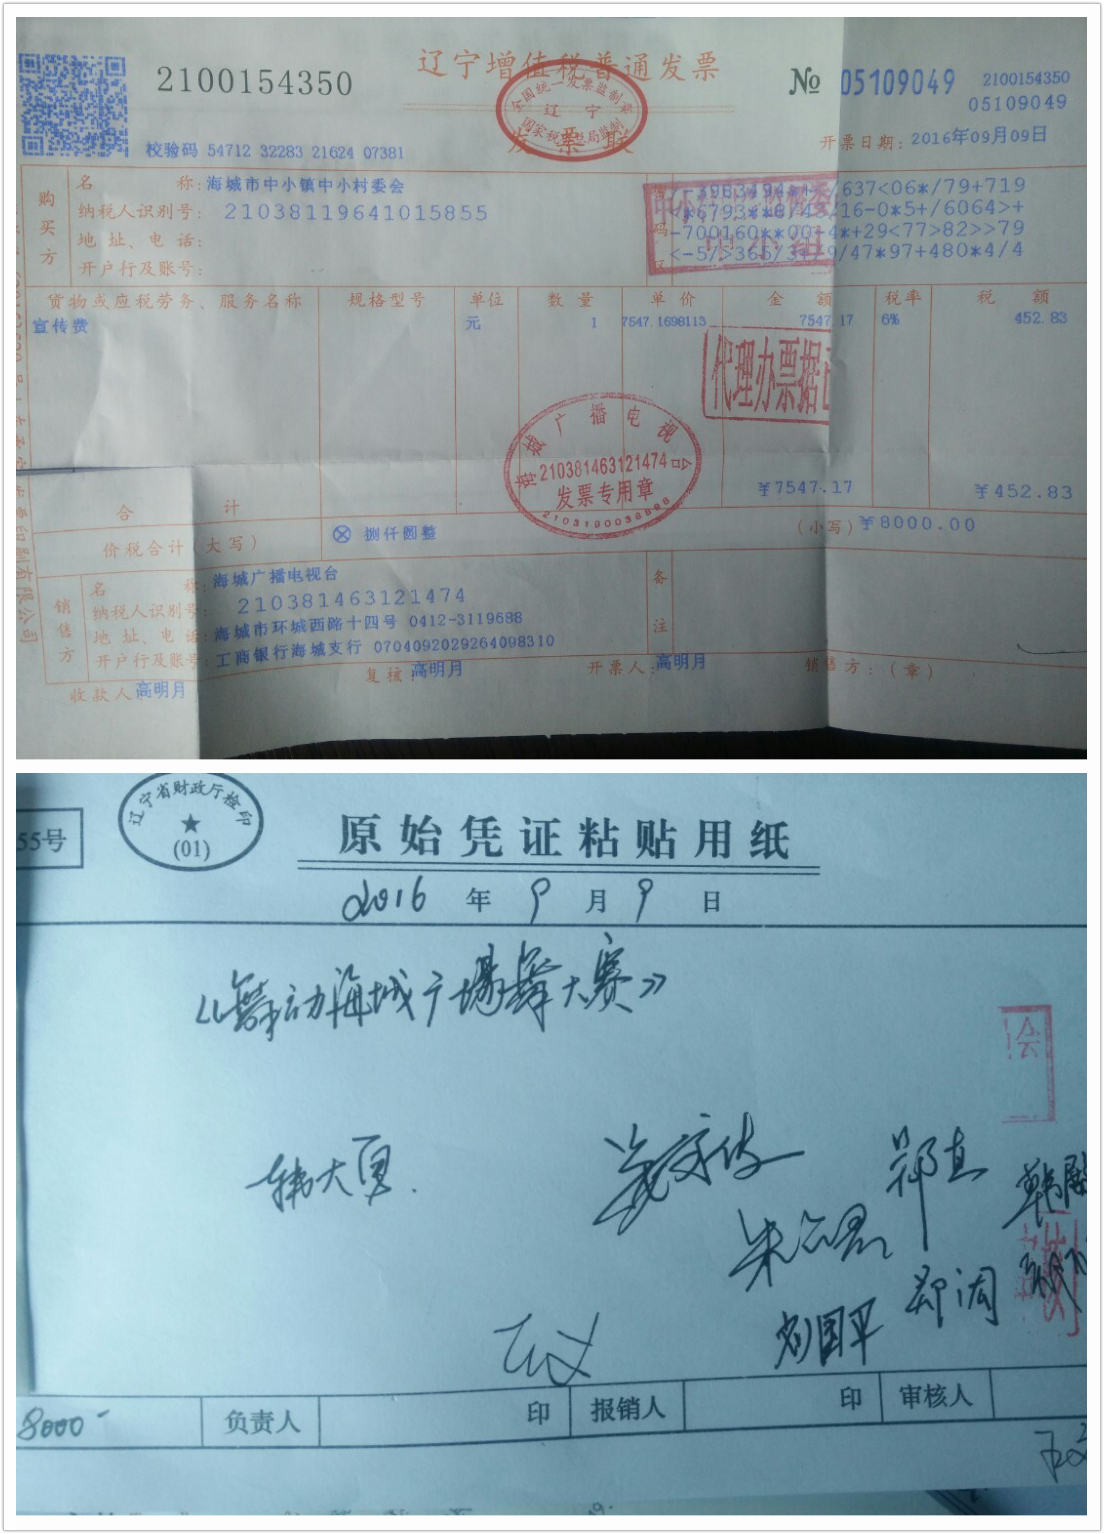 辽宁增值税普通发票
2100154350
№ 05109049
2100154350
05109049
全国统一发票监制章
辽宁
国家税务总局监制
发票联
校验码 54712 32283 21624 07381
开票日期: 2016年09月09日
购买方
名称: 海城市中小镇中小村委会
纳税人识别号: 210381119641015855
地址、电话:
开户行及账号:
/637<06*/79+719
16-0*5+/6064>+
-700160**00+4*+29<77>82>>79
/47*97+480*4/4
货物或应税劳务、服务名称 规格型号 单位 数量 单价 金额 税率 税额
宣传费 元 1 7547.1698113 7547.17 6% 452.83
代理办票据
海城广播电视台
210381463121474
发票专用章
合计 ¥7547.17 ¥452.83
价税合计(大写) ⊗ 捌仟圆整 (小写) ¥8000.00
销售方
名称: 海城广播电视台
纳税人识别号: 210381463121474
地址、电话: 海城市环城西路十四号 0412-3119688
开户行及账号: 工商银行海城支行 0704092029264098310
备注
收款人 高明月 复核: 高明月 开票人: 高明月 销售方:(章)
55号
辽宁省财政厅检印
(01)
原始凭证粘贴用纸
2016 年 9 月 9 日
《舞动海城广场舞大赛》
会
韩大勇
郑直
刘国平
8000- 负责人 印 报销人 印 审核人